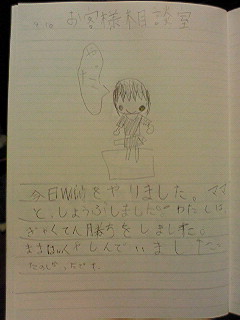 お客様相談室
今日Wiiをヤリました。ママ
と、しょうぶしました。わたしは、
ぎゃくてん勝ちをしました。
ままはくやしんでいました。
たのしかったです。